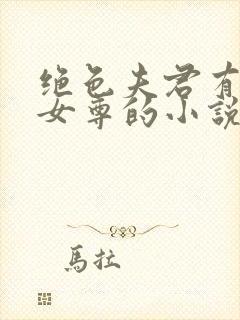 绝色夫君有
女尊的小説
馬拉